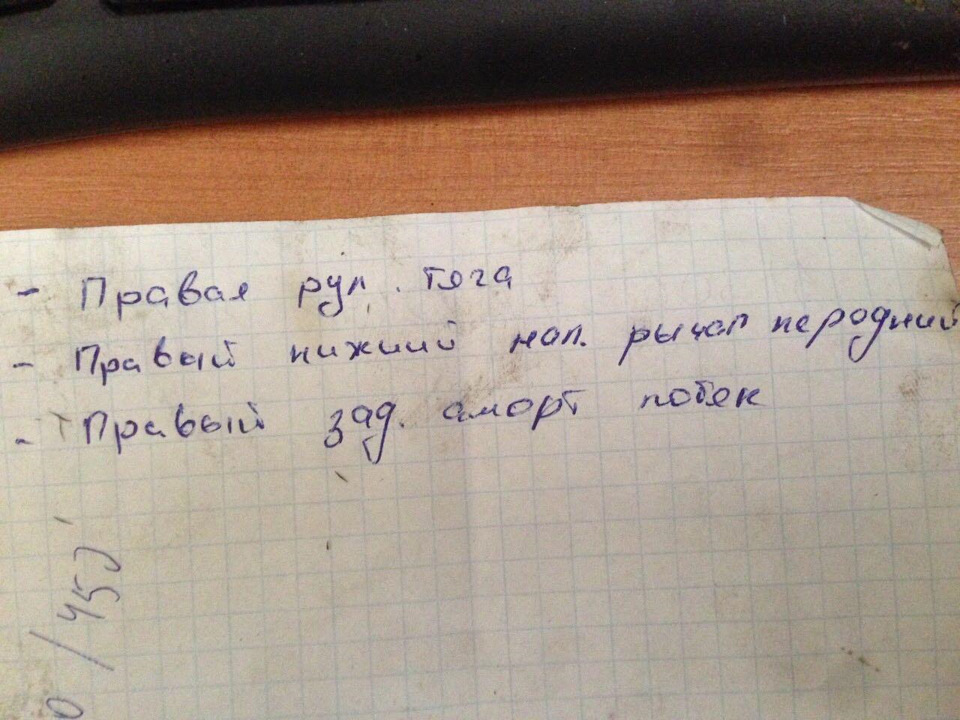 - Правая рул. тяга
- Правый нижний нап. рычаг передний
- Правый зад. аморт потек
/450